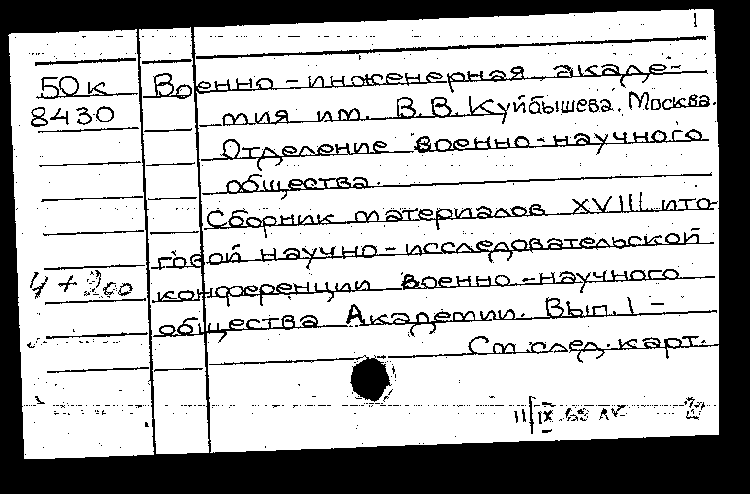 1
50к Военно-инженерная акаде-
8430 мия им. В.В. Куйбышева. Москва.
Отделение военно-научного
общества.
Сборник материалов XVIII ито-
говой научно-исследовательской
4+200 конференции военно-научного
общества Академии. Вып. 1-
См. след. карт.
11/IX